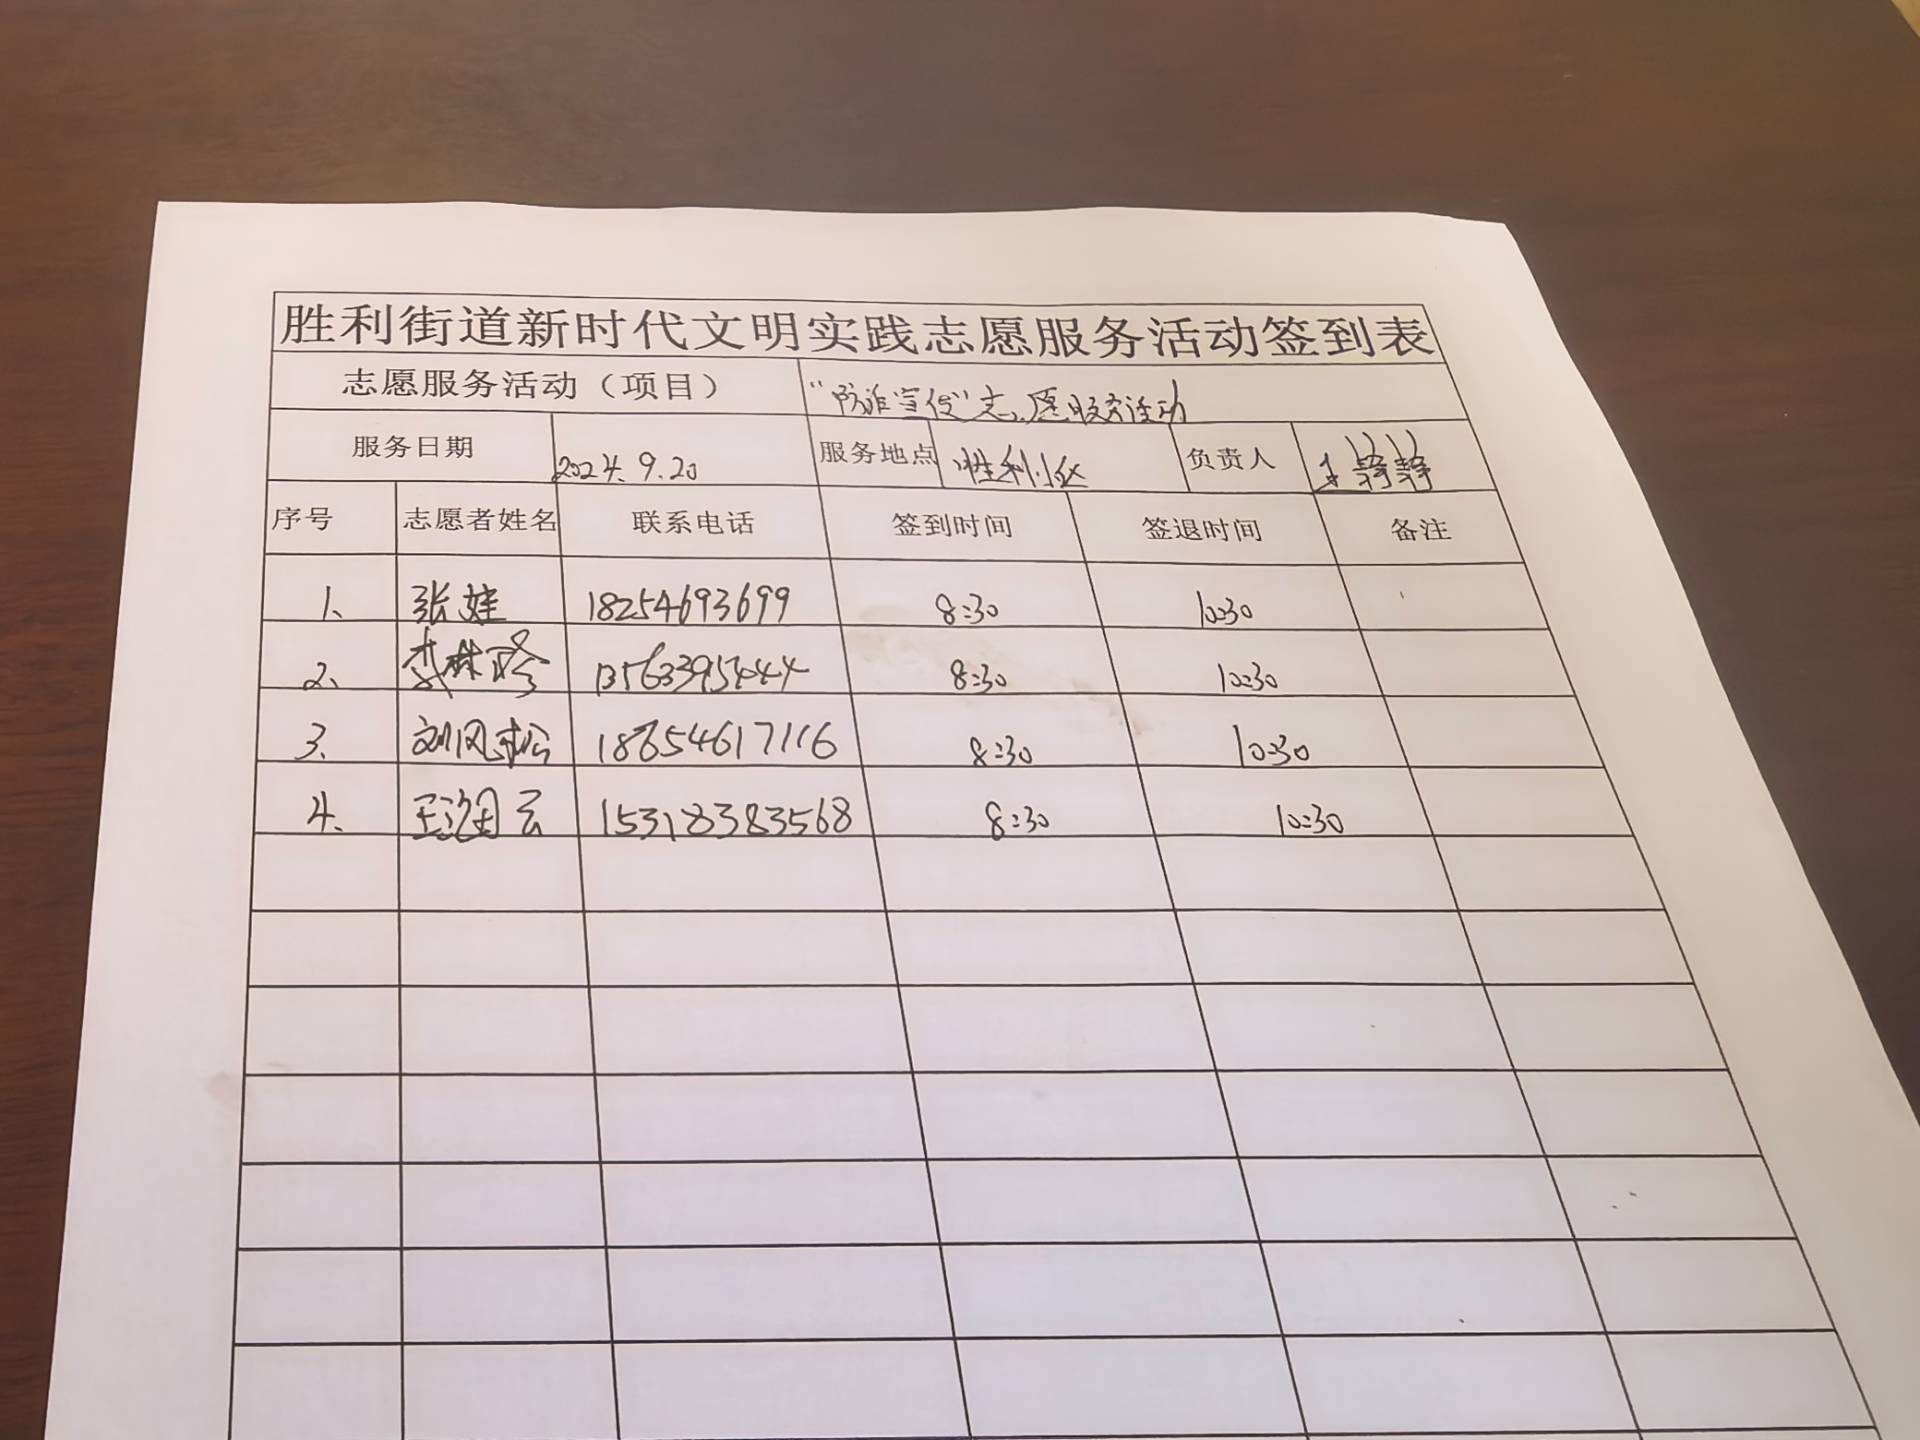 胜利街道新时代文明实践志愿服务活动签到表
志愿服务活动（项目） “防诈宣传”志愿服务活动
服务日期 2024.9.20 服务地点 胜利小区 负责人 王静静
序号 志愿者姓名 联系电话 签到时间 签退时间 备注
1、 张娃 18254693699 8:30 10:30
2、 李林 8:30 10:30
3、 刘风松 18654617116 8:30 10:30
4、 王 云 15318383568 8:30 10:30